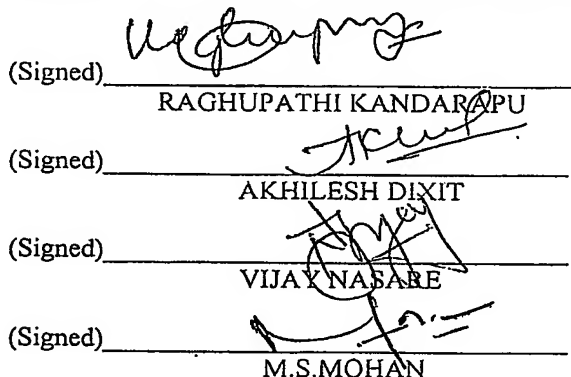 (Signed)
RAGHUPATHI KANDARAPU
(Signed)
AKHILESH DIXIT
(Signed)
VIJAY NASARE
(Signed)
M.S.MOHAN